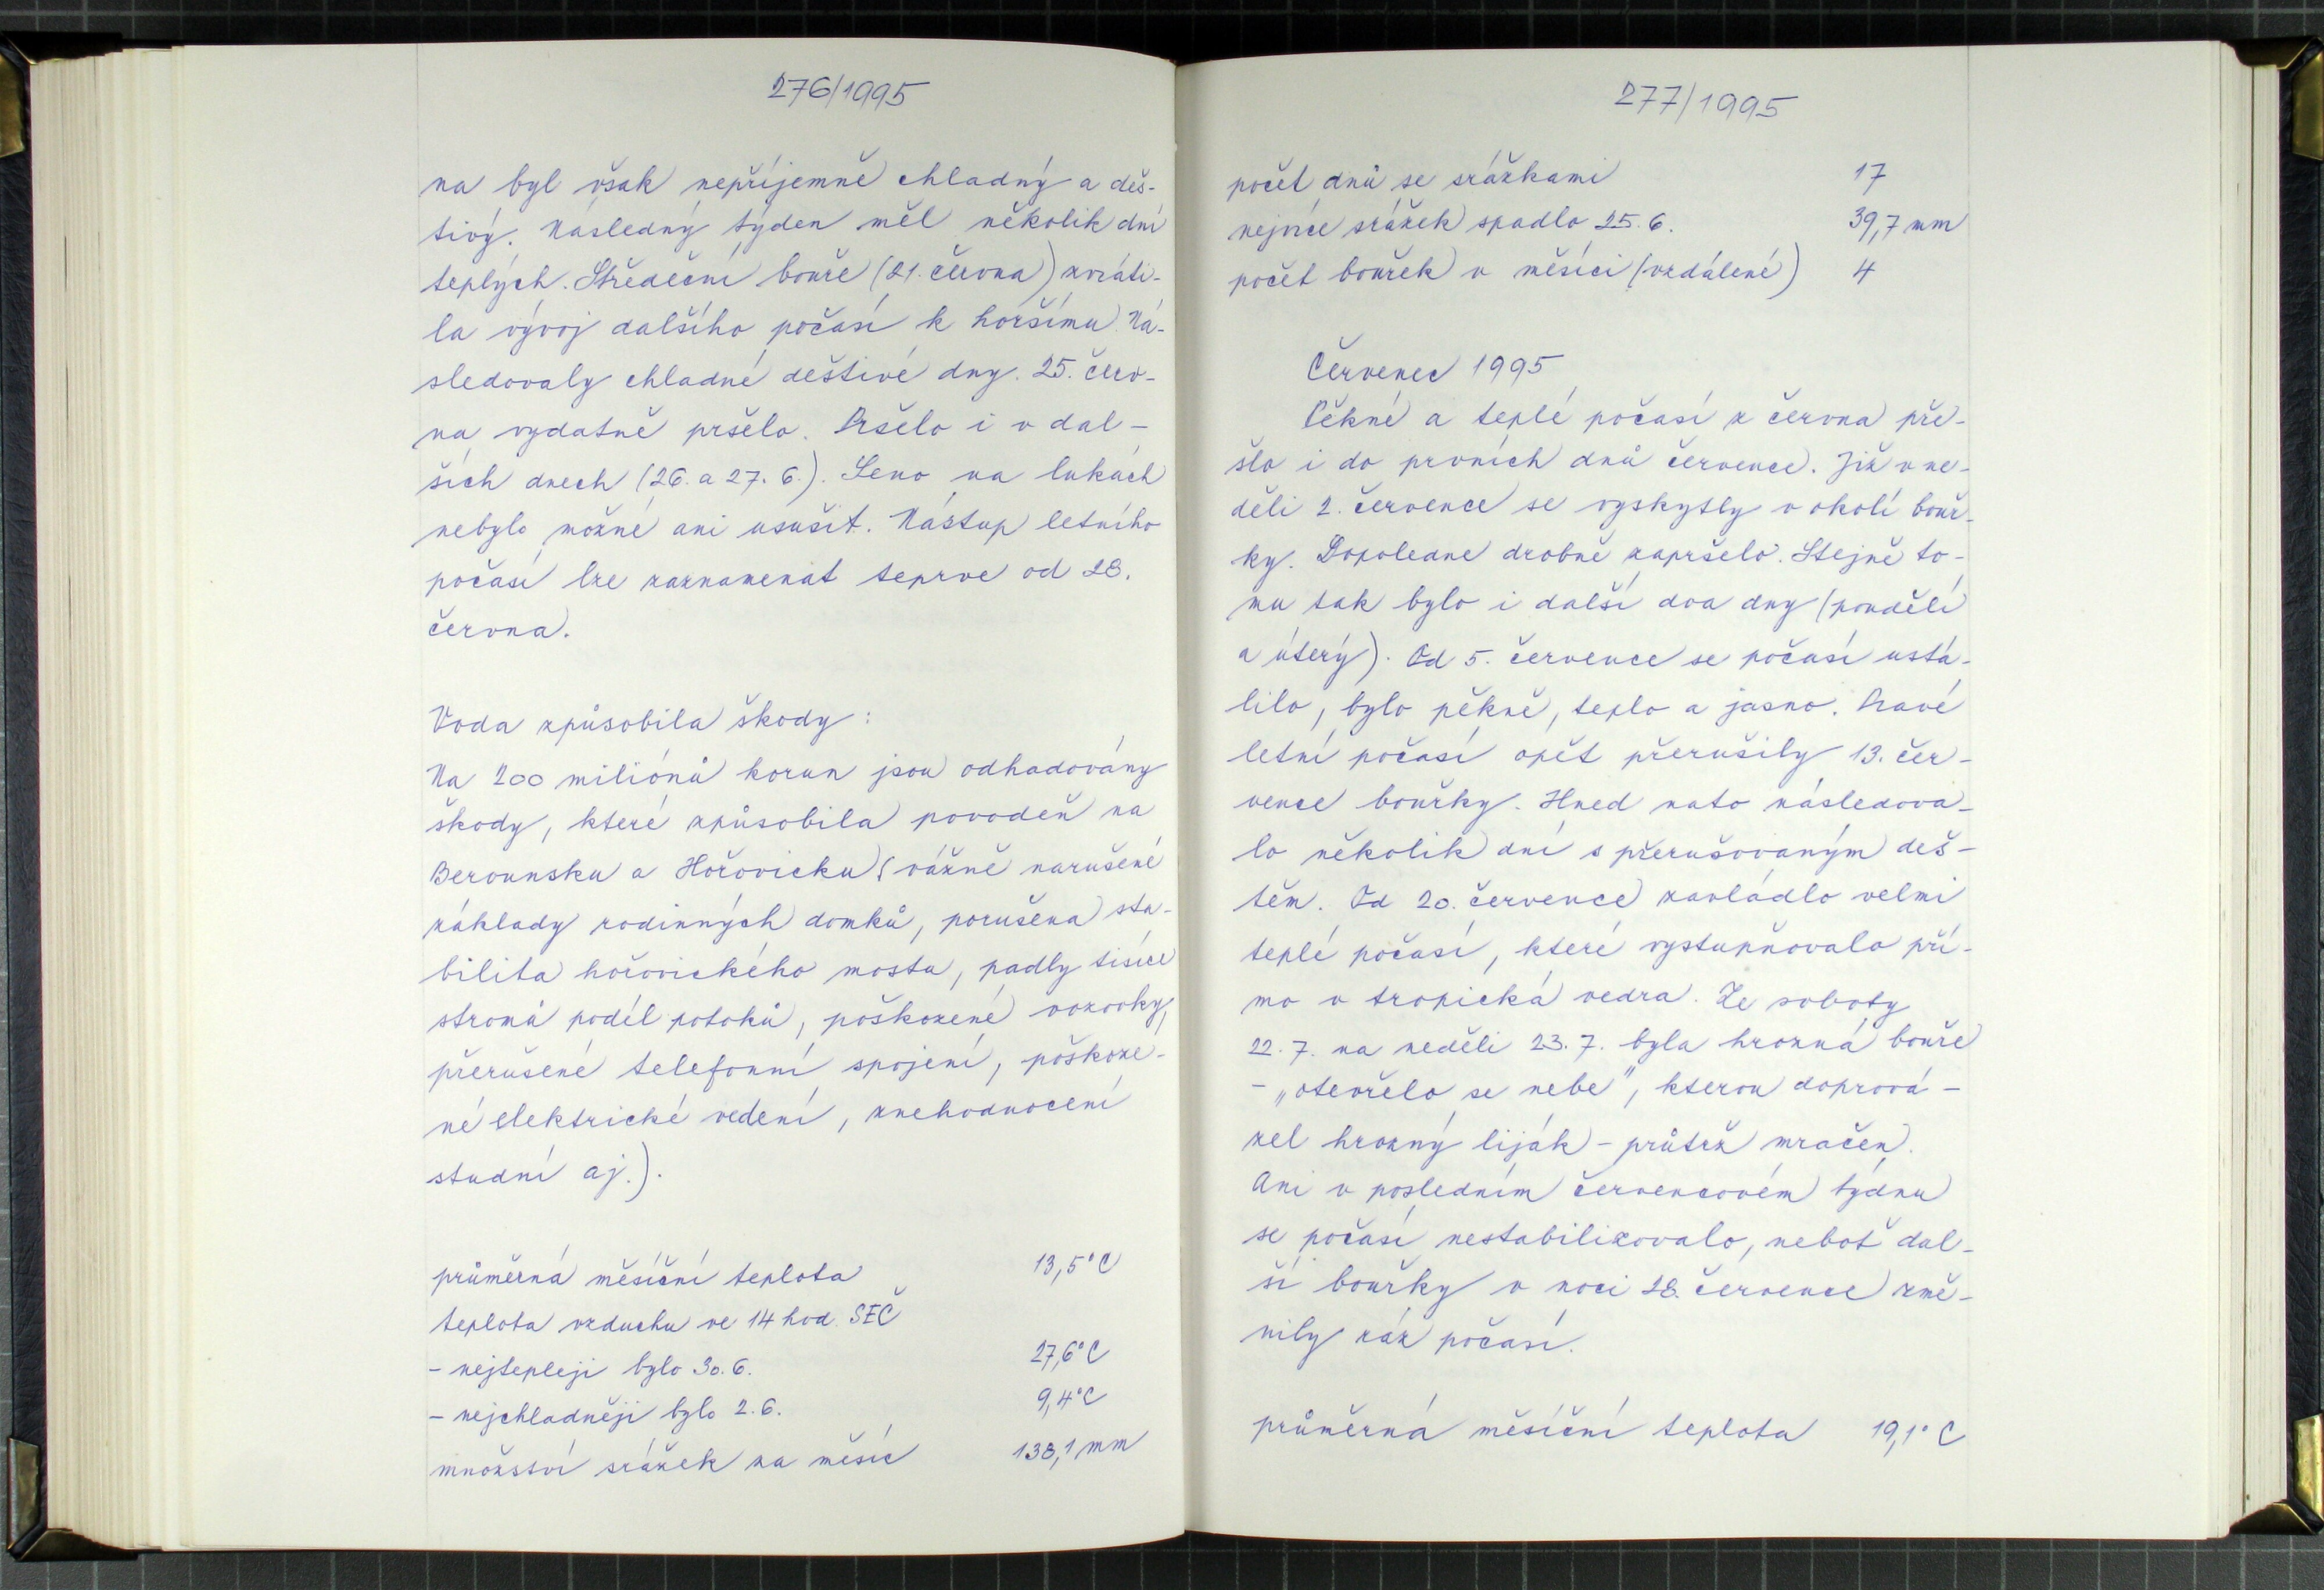 276/1995
na byl však nepříjemně chladný a deš-
tivý. Následný týden měl několik dní
teplých. Středeční bouře (21. června) zvráti-
la vývoj dalšího počasí k horšímu. Ná-
sledovaly chladné deštivé dny. 25. červ-
na vydatně pršelo. Pršelo i v dal-
ších dnech (26. a 27. 6.). Seno na lukách
nebylo možné ani usušit. Nástup letního
počasí lze zaznamenat teprve od 28.
června.
Voda způsobila škody:
Na 200 miliónů korun jsou odhadovány
škody, které způsobila povodeň na
Berounsku a Hořovicku (vážně narušené
základy rodinných domků, porušena sta-
bilita hořovického mostu, padly tisíce
stromů podél potoků, poškozené vozovky,
přerušené telefonní spojení, poškoze-
né elektrické vedení, znehodnocení
studní aj.).
průměrná měsíční teplota 13,5°C
teplota vzduchu ve 14 hod. SEČ
- nejtepleji bylo 30. 6. 27,6°C
- nejchladněji bylo 2. 6. 9,4°C
množství srážek za měsíc 138,1 mm
277/1995
počet dnů se srážkami 17
nejvíce srážek spadlo 25. 6. 39,7 mm
počet bouřek v měsíci (vzdálené) 4
Červenec 1995
Pěkné a teplé počasí z června pře-
šlo i do prvních dnů července. Již v ne-
děli 2. července se vyskytly v okolí bouř-
ky. Dopoledne drobně zapršelo. Stejně to-
mu tak bylo i další dva dny (pondělí
a úterý). Od 5. července se počasí ustá-
lilo, bylo pěkně, teplo a jasno. Pravé
letní počasí opět přerušily 13. čer-
vence bouřky. Hned nato následova-
lo několik dní s přerušovaným deš-
těm. Od 20. července zavládlo velmi
teplé počasí, které vystupňovalo pří-
mo v tropická vedra. Ze soboty
22. 7. na neděli 23. 7. byla hrozná bouře
- „otevřelo se nebe", kterou doprová-
zel hrozný liják - průtrž mračen.
Ani v posledním červencovém týdnu
se počasí nestabilizovalo, neboť dal-
ší bouřky v noci 28. července změ-
nily ráz počasí.
průměrná měsíční teplota 19,1°C